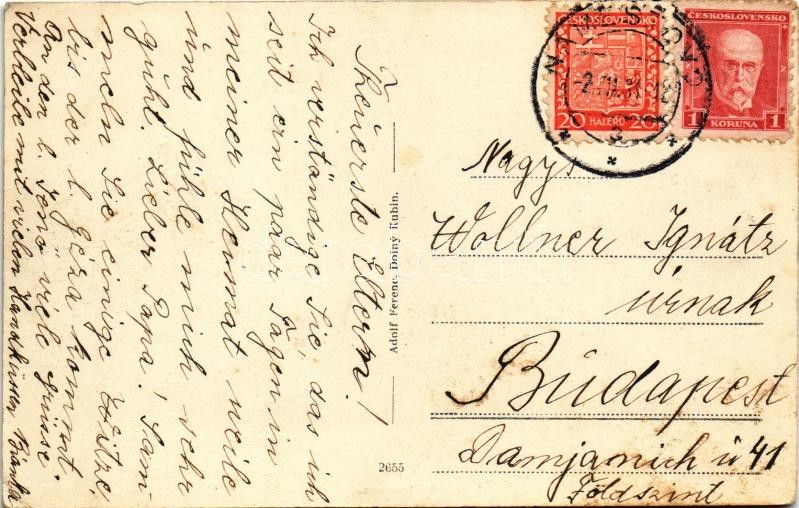 Teuerste Eltern!
Ich verständige Sie, das ich
seit ein paar Tagen in
meiner Heimat weile
und fühle mich sehr
guht. Lieber Papa! Sam-
meln Sie einige Witze,
bis der l. Géza kommt.
An den l. Jenö viele Grüsse.
Verbleibe mit vielen Handküssen Bianka
Adolf Ferenc, Dolný Kubín.
2655
ČESKOSLOVENSKO
20 HALÉŘŮ 20
ČESKOSLOVENSKO
1 KORUNA 1
Nagys
Wollner Ignátz
úrnak
Budapest
Damjanich ú 41
Földszint